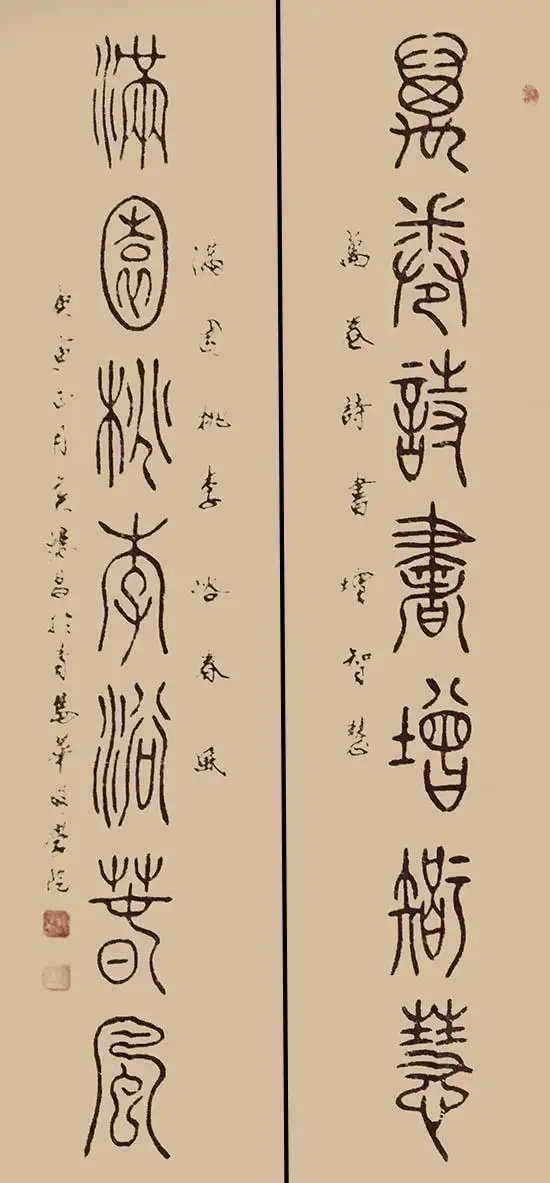 萬卷詩書增智慧
萬卷詩書增智慧
滿園桃李浴春風
滿園桃李浴春風
庚寅正月